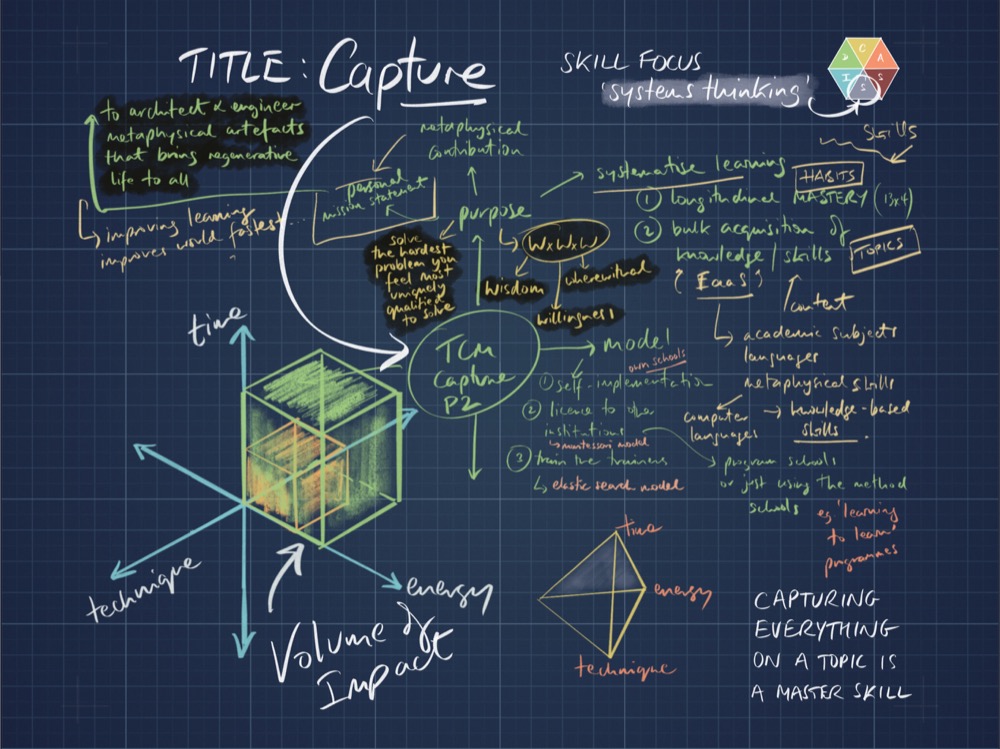 TITLE: Capture
SKILL FOCUS
'systems thinking'
D C A
I S S
SKILLS
to architect & engineer
metaphysical artefacts
that bring regenerative
life to all
improving learning
improves world fastest...
metaphysical
contribution
personal
mission statement
purpose
solve
the hardest
problem you
feel most
uniquely
qualified
to solve
WxWxW
wisdom
wherewithal
willingness
systematise learning
HABITS
1 longitudinal MASTERY (13x4)
2 bulk acquisition of
knowledge / skills
TOPICS
(EaaS)
content
academic subjects
languages
metaphysical skills
computer
languages
knowledge-based
skills.
TCM
Capture
P2
model
own schools
1 self-implementation
2 licence to other
institutions
montessori model
3 train the trainers
elastic search model
program schools
or just using the method
schools
eg 'learning
to learn'
programmes
time
technique
energy
Volume of
Impact
time
energy
technique
CAPTURING
EVERYTHING
ON A TOPIC IS
A MASTER SKILL